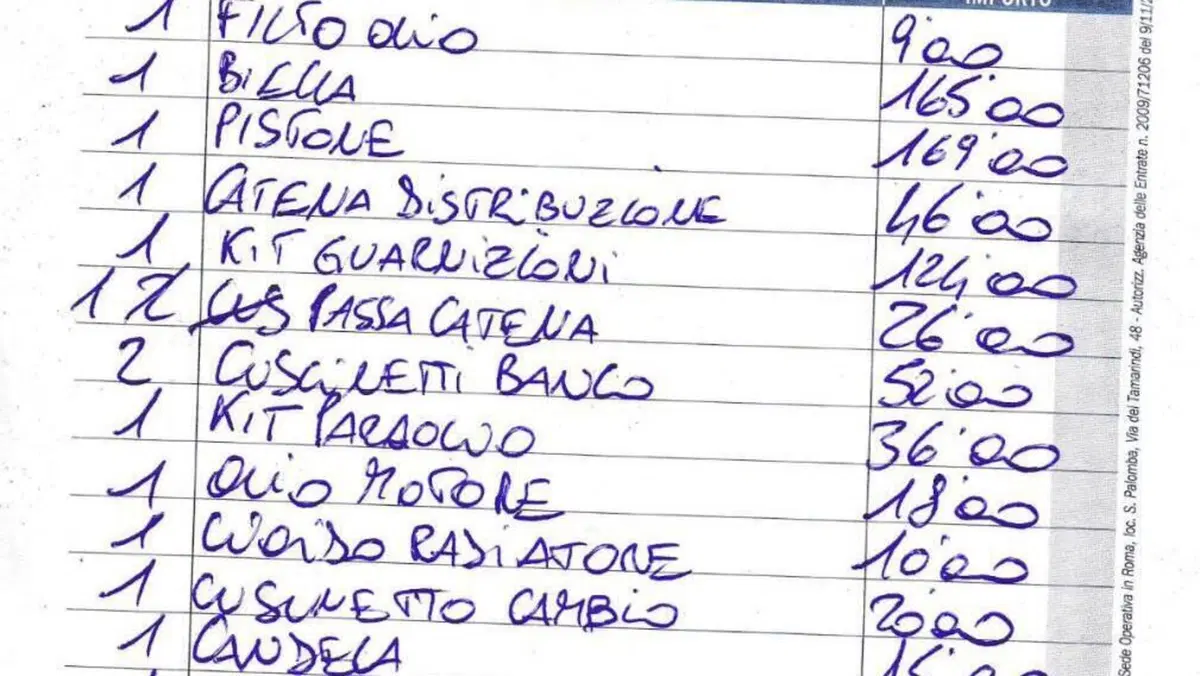 IMPORTO
1 FILTO OLIO 9'00
1 BIELLA 165'00
1 PISTONE 169'00
1 CATENA DISTRIBUZIONE 46'00
1 KIT GUARNIZIONI 124'00
1 2 PASSA CATENA 26'00
2 CUSCINETTI BANCO 52'00
1 KIT PARAOLIO 36'00
1 OLIO MOTORE 18'00
1 RADIATORE 10'00
1 CUSCINETTO CAMBIO 20'00
1 CANDELA
Sede Operativa in Roma, loc. S. Palomba, Via dei Tamarindi, 48 - Autorizz. Agenzia delle Entrate n. 2009/71206 del 9/11/2